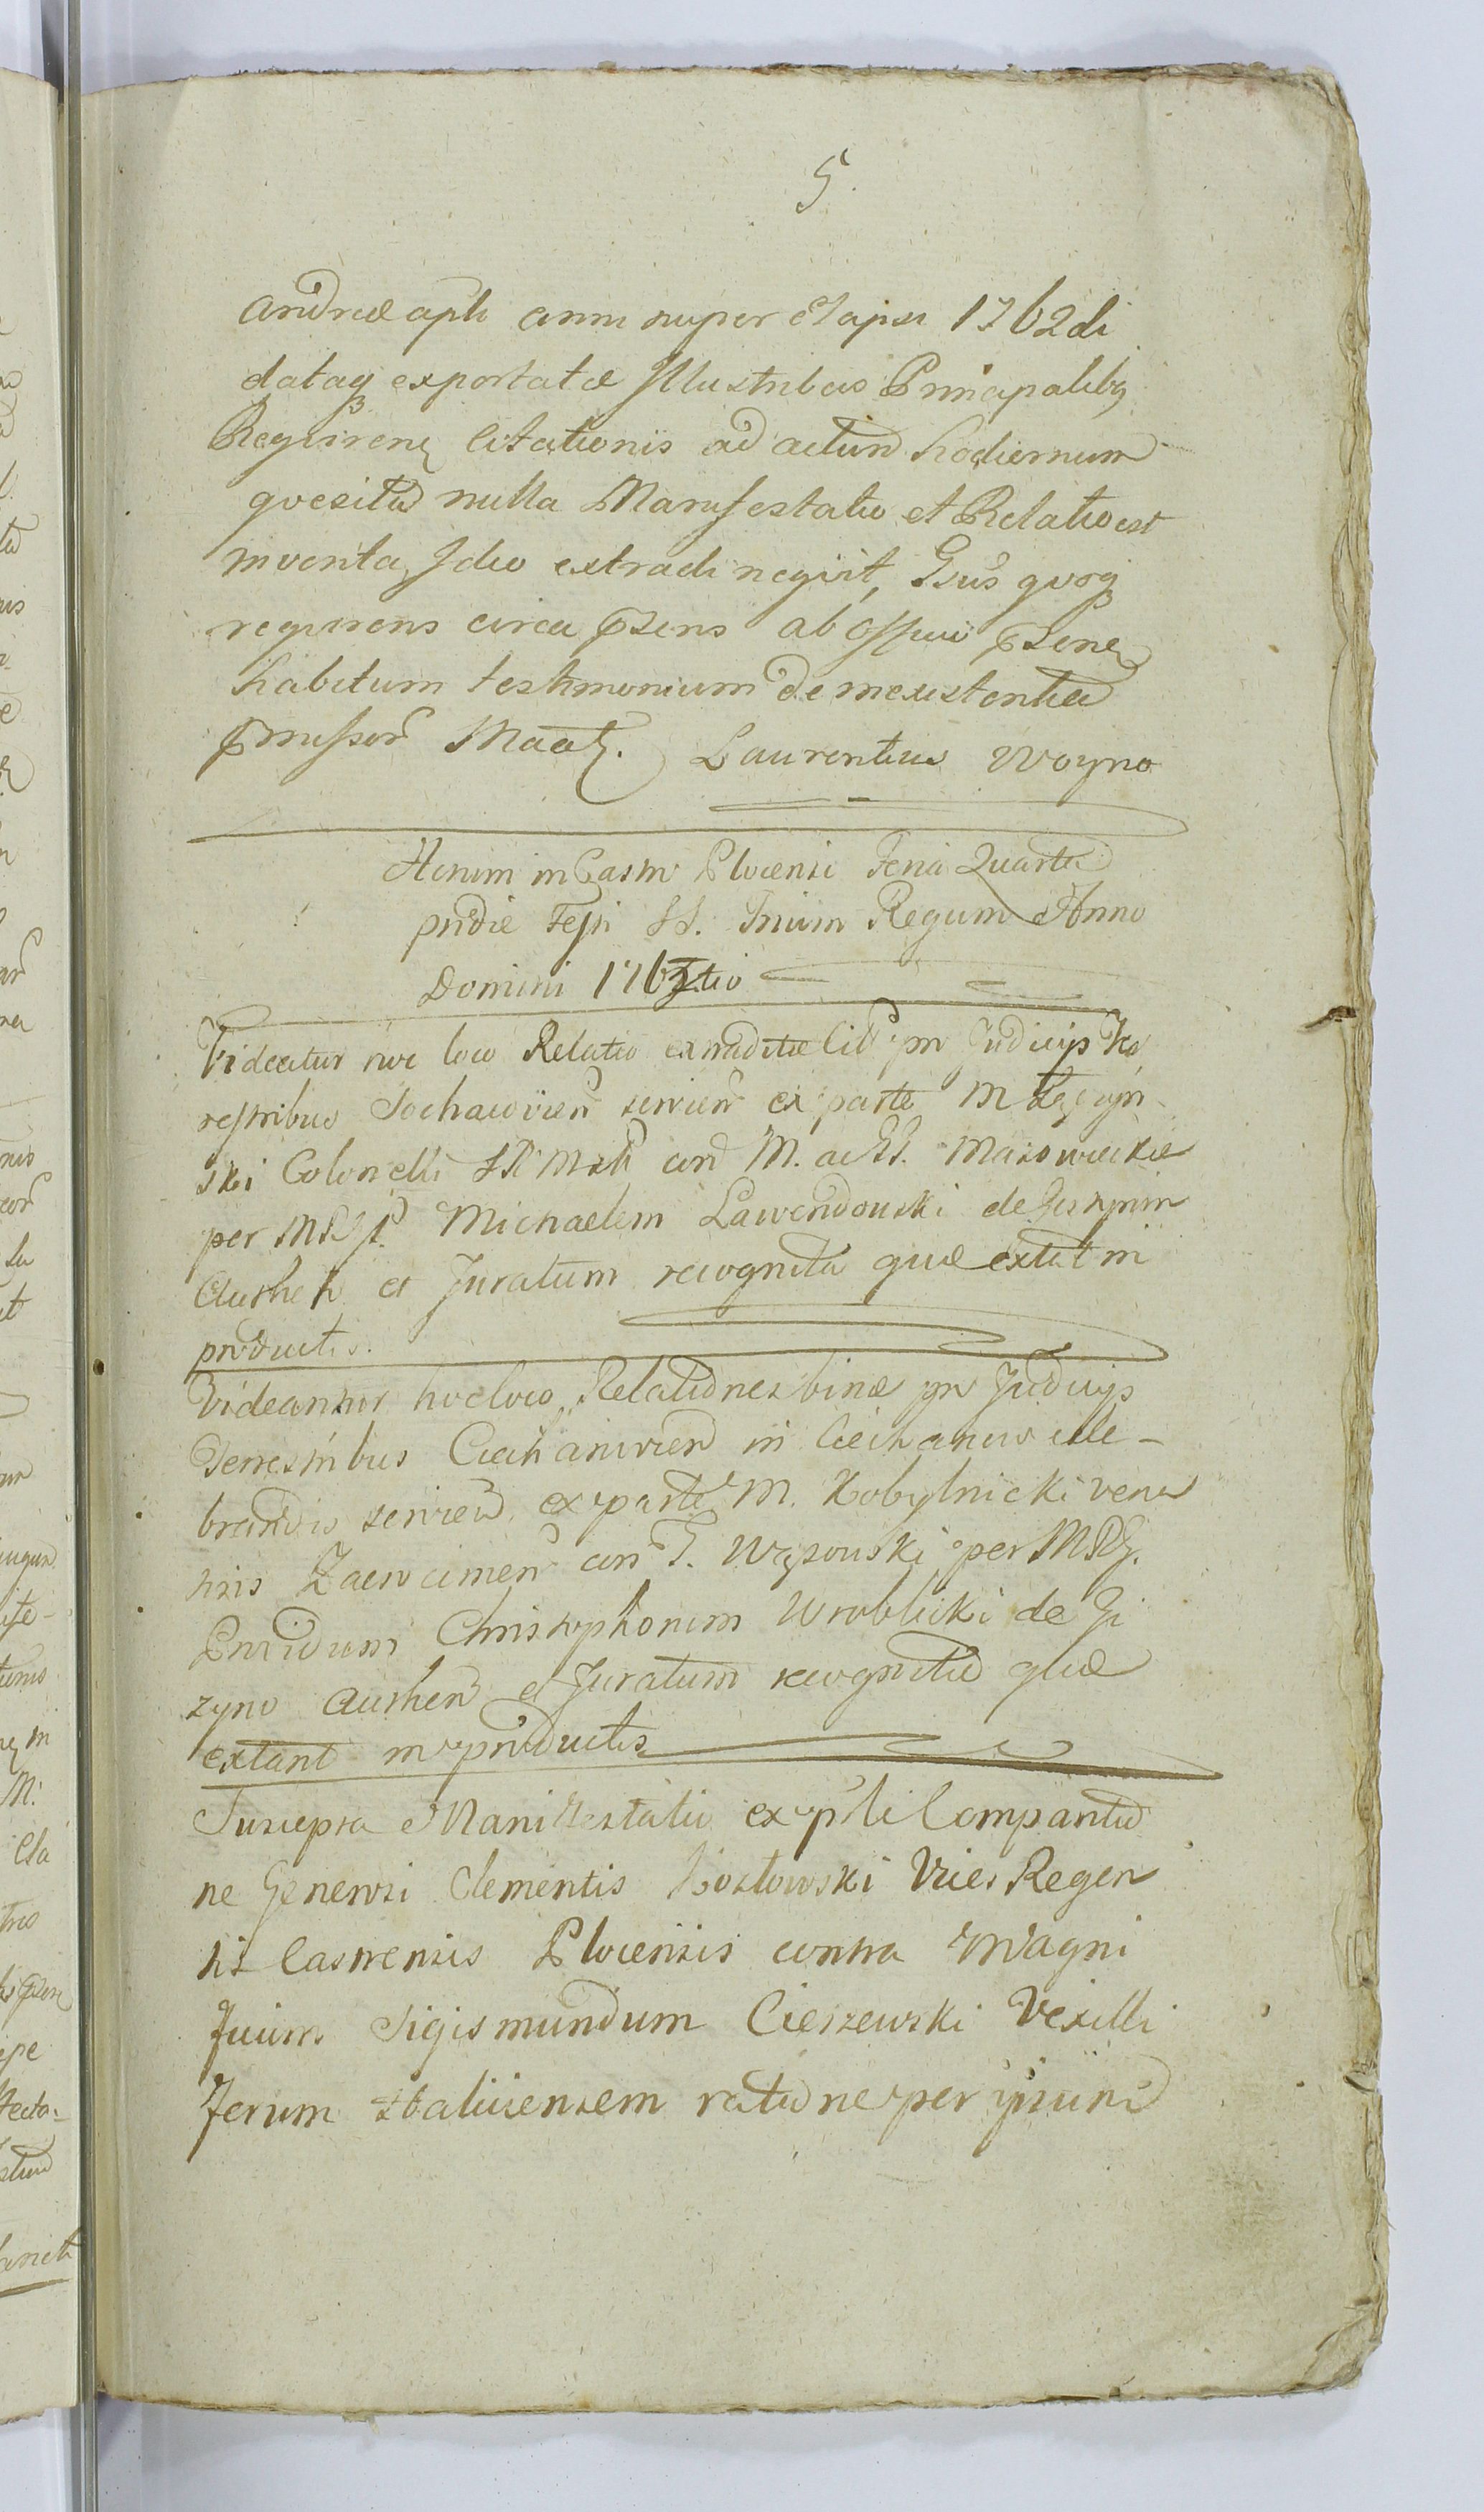 5.
Andreæ apli anni nuper elapsi 1762di
dataq exportatæ Illustribus Principalibq
Requiren citationis ad actum hodiernum
quesita nulla Manifestatio et Relatio est
inventa, Ideo extradi neqvit, Gsus quoq
requirens circa psens ab offuo psene
habitum testimonium de inexistentia
pmissor Maatz. Laurentius Woyno
Actum in Castro Plocensi Feria Quarta
pridie Festi SS. Trium Regum Anno
Domini 1763tio
Videatur hoc loco Relatio extraditæ Cit pro Judicijs Te
restribus Sochaovien servien ex parte M
ski Colonelli con M. ac GG. Mazowieckie
per MRGł Michaelem Lawendowski de
Authen et Juratum recognita quæ extat in
productis.
Videantur hoc loco Relationes binæ pro Judicijs
Terrestribus Ciechanovien in Ciechanow cele-
brandis servien ex parte M. Kobylnicki vena
toris Zawcrinen con G. Wąsowski per MRG.
Providum Christophorum Wroblicki de Gi
zyno Authen et Juratum recognita quæ
extant in productis
Suscepta Manifestatio ex psti Comparitio
ne Generosi Clementis Kozłowski Vices Regen
tis Castrensis Plocensis contra Magni
ficum Sigismundum Cieszewski Vexilli
ferum ratione per ipsum